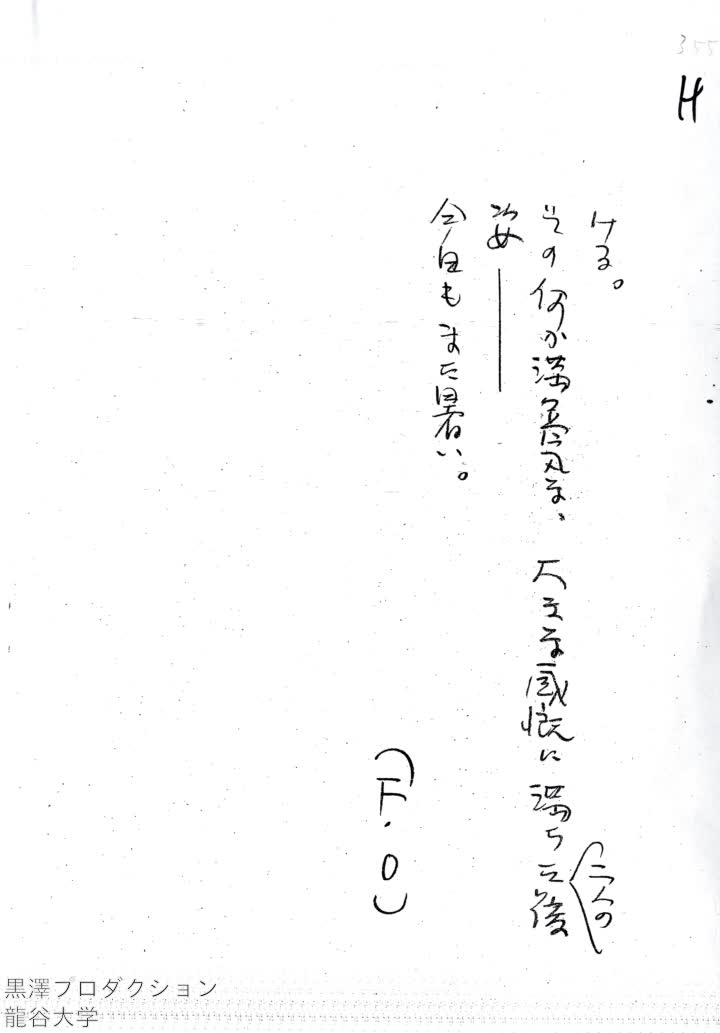 355
H
ける。
その何か満足気な、大きな感慨に満ちた二人の後
姿――
今日もまた暑い。
(F.O)
黒澤プロダクション
龍谷大学